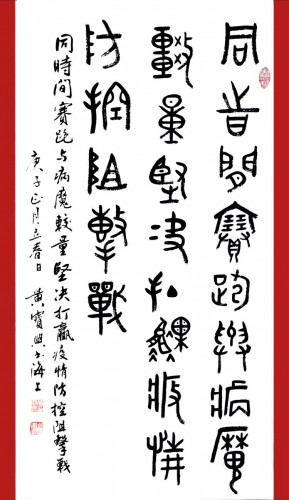 同旹間賽跑與病魔
較量堅決打贏疫情
防控阻擊戰
同時間賽跑与病魔較量堅決打贏疫情防控阻擊戰
庚子正月立春日 黄寶興书海上